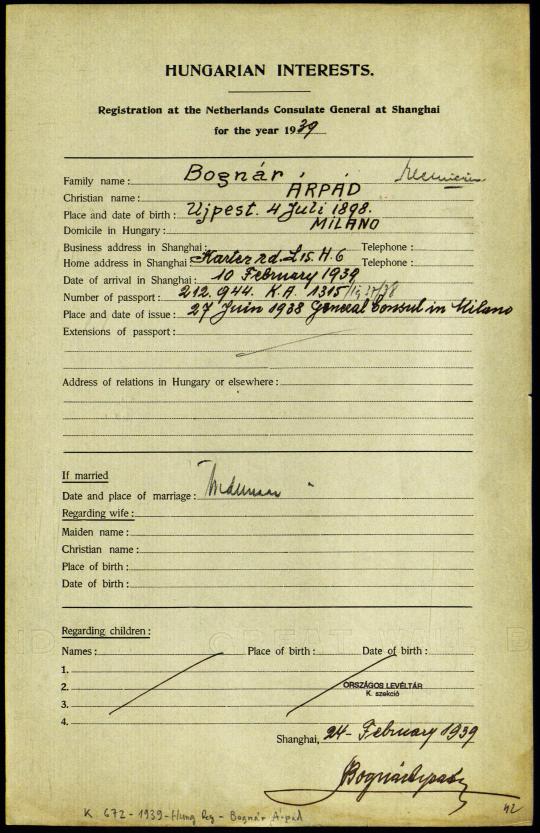 HUNGARIAN INTERESTS.
Registration at the Netherlands Consulate General at Shanghai
for the year 1939
Family name: Bognár
Christian name: ÁRPÁD
Place and date of birth: Ujpest. 4 Juli 1898.
Domicile in Hungary: MILANO
Business address in Shanghai: Telephone:
Home address in Shanghai: Karter rd. L15. H. 6 Telephone:
Date of arrival in Shanghai: 10 February 1939
Number of passport: 212. 944. K.A. 1315
Place and date of issue: 27 Juin 1938 General Consul in Milano
Extensions of passport:
Address of relations in Hungary or elsewhere:
If married
Date and place of marriage:
Regarding wife:
Maiden name:
Christian name:
Place of birth:
Date of birth:
Regarding children:
Names: Place of birth: Date of birth:
1.
2.
ORSZÁGOS LEVÉLTÁR
K. szekció
3.
4.
Shanghai, 24- February 1939
Bognár Árpád
42
K 672 - 1939 - Hung Reg - Bognár Árpád